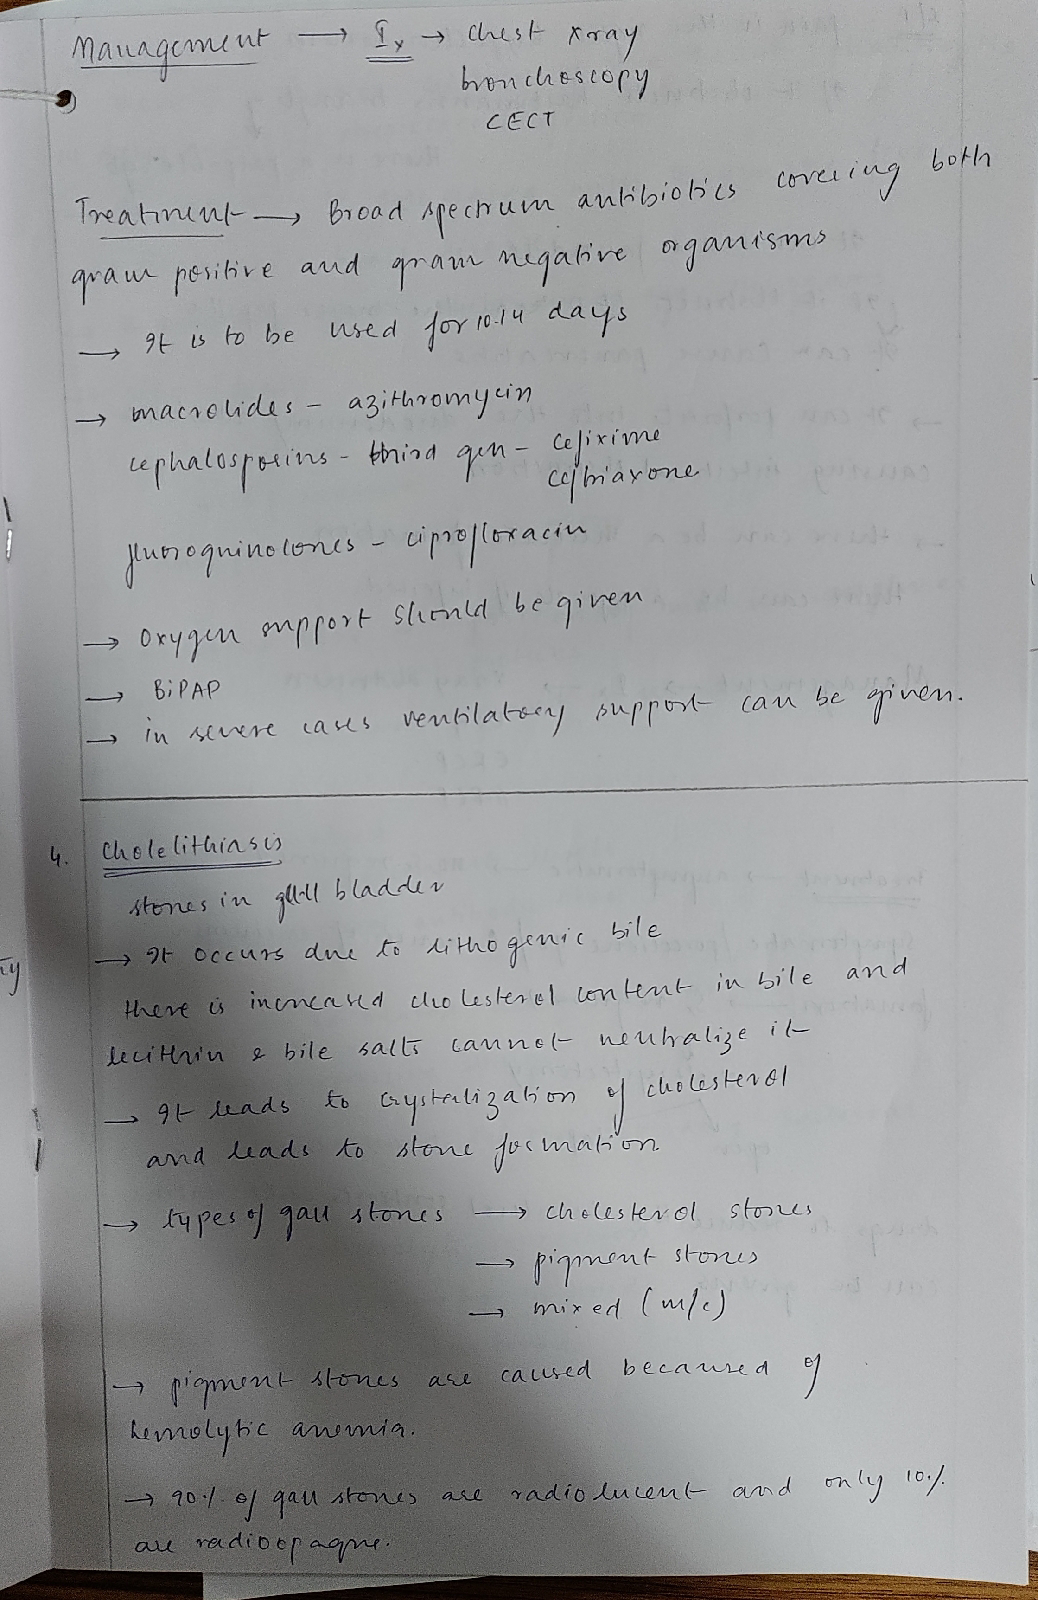 Management → Ix → chest xray
bronchoscopy
CECT
Treatment → Broad spectrum antibiotics covering both
gram positive and gram negative organisms
→ It is to be used for 10-14 days
→ macrolides - azithromycin
cephalosporins - third gen - cefixime
ceftriaxone
fluoroquinolones - ciprofloxacin
→ oxygen support should be given
→ BiPAP
→ in severe cases ventilatory support can be given.
4. Cholelithiasis
stones in gall bladder
→ It occurs due to lithogenic bile
there is increased cholesterol content in bile and
lecithin & bile salts cannot neutralize it
→ It leads to crystalization of cholesterol
and leads to stone formation
→ types of gall stones → cholesterol stones
→ pigment stones
→ mixed (m/c)
→ pigment stones are caused becaused of
hemolytic anemia.
→ 90% of gall stones are radiolucent and only 10%
are radioopaque.